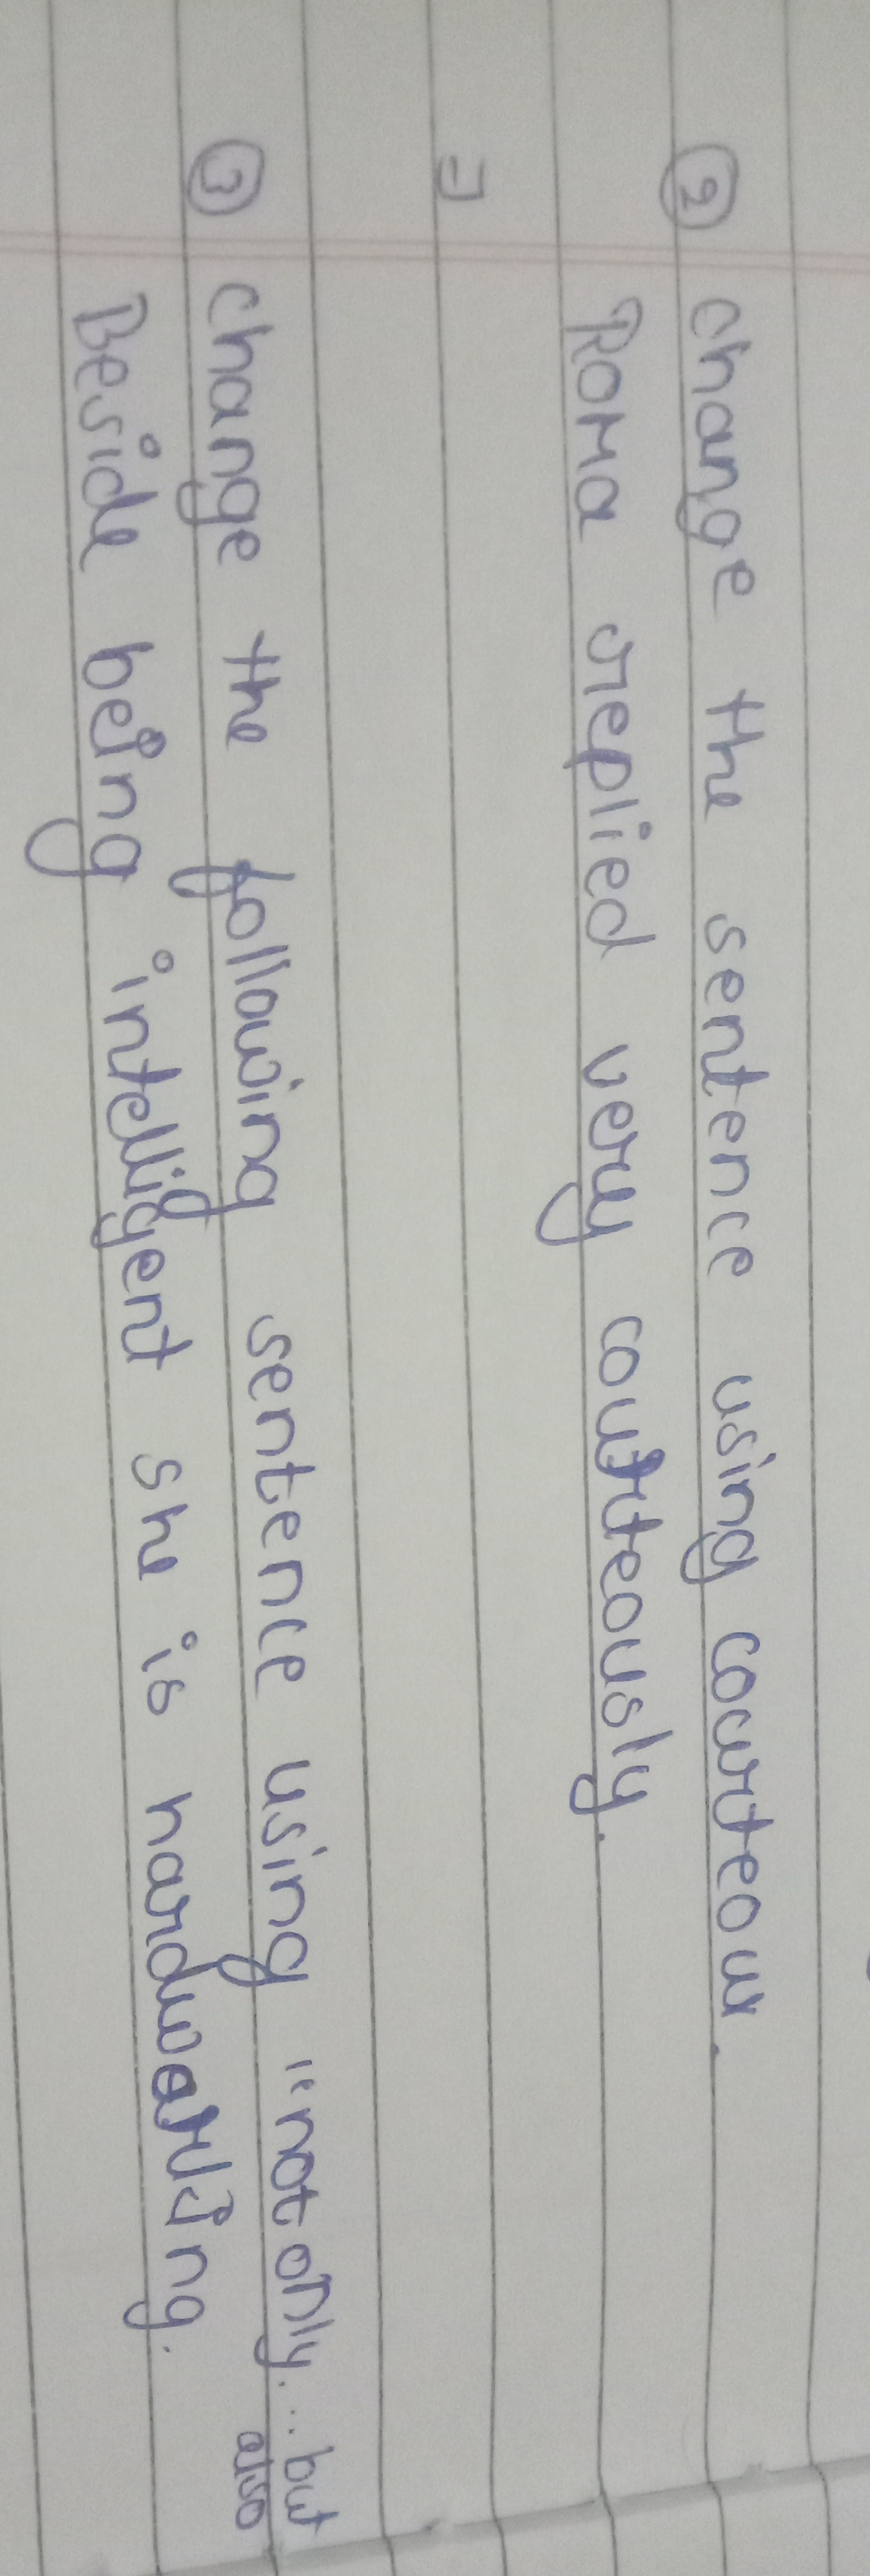 ② change the sentence using courteous.
Roma replied very courteously.
⇒
③ change the following sentence using "not only... but
also
Beside being intelligent she is hardworking.